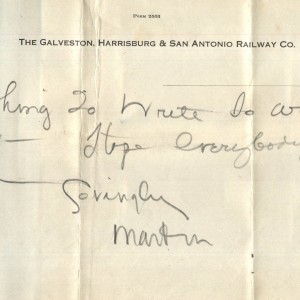 Form 2503
THE GALVESTON, HARRISBURG & SAN ANTONIO RAILWAY CO.
thing To Write So
— Hope Everybody
Lovingly
Martin